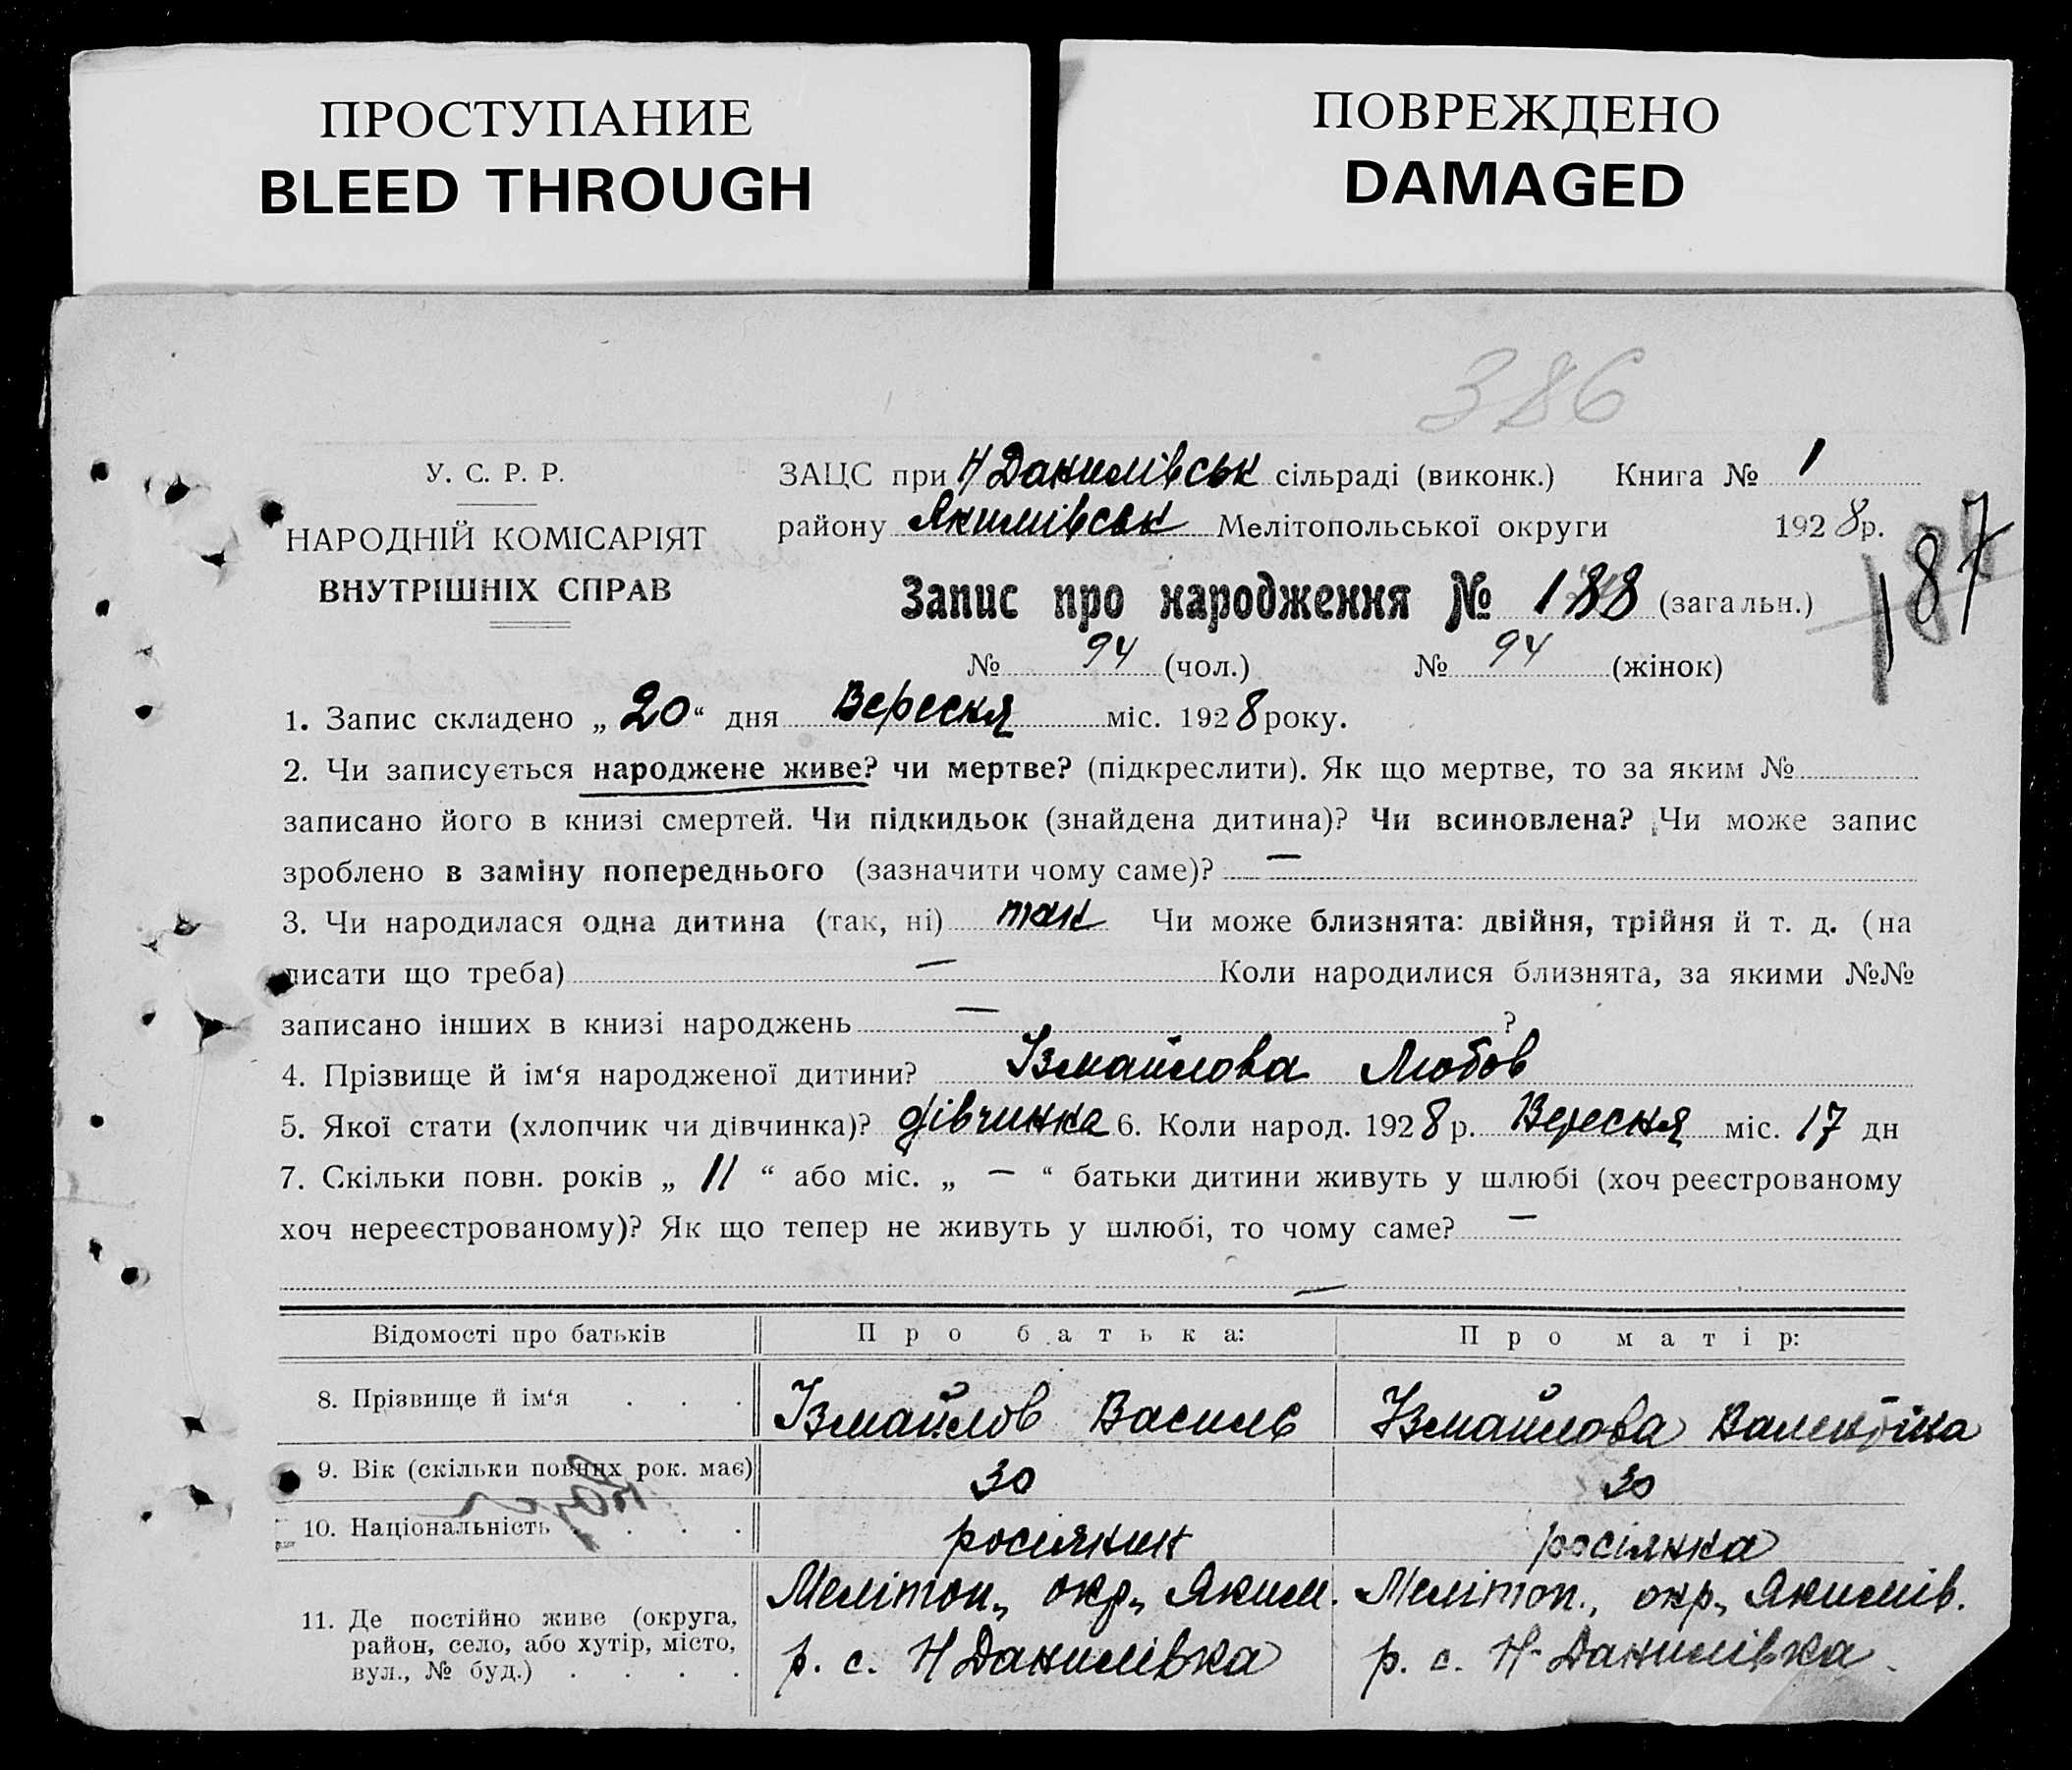 ПРОСТУПАНИЕ
BLEED THROUGH
ПОВРЕЖДЕНО
DAMAGED
386
У. С. Р. Р.
НАРОДНІЙ КОМІСАРІЯТ
ВНУТРІШНІХ СПРАВ
ЗАЦС при Н Данилівськ сільраді (виконк.) Книга № 1
району Якимівськ Мелітопольської округи 1928р.
187
Запис про народження № 188 (загальн.)
№ 94 (чол.) № 94 (жінок)
1. Запис складено „20“ дня Вересня міс. 1928 року.
2. Чи записується народжене живе? чи мертве? (підкреслити). Як що мертве, то за яким №
записано його в книзі смертей. Чи підкидьок (знайдена дитина)? Чи всиновлена? Чи може запис
зроблено в заміну попереднього (зазначити чому саме)? —
3. Чи народилася одна дитина (так, ні) так Чи може близнята: двійня, трійня й т. д. (на
писати що треба) — Коли народилися близнята, за якими №№
записано інших в книзі народжень — ?
4. Прізвище й ім‘я народженої дитини? Ізмайлова Любов
5. Якої стати (хлопчик чи дівчинка)? дівчинка 6. Коли народ. 1928 р. Вересня міс. 17 дн
7. Скільки повн. років „ 11 “ або міс. „ — “ батьки дитини живуть у шлюбі (хоч реєстрованому
хоч нереєстрованому)? Як що тепер не живуть у шлюбі, то чому саме? —
—
Відомості про батьків Про батька: Про матір:
8. Прізвище й ім‘я . . . Ізмайлов Василь Ізмайлова Валентіна
9. Вік (скільки повних рок. має) 30 30
10. Національність . . . . росіянин росіянка
11. Де постійно живе (округа, район, село, або хутір, місто, вул., № буд.) . . . .
Мелітоп., окр., Яким. Мелітоп., окр., Якимів.
р. с. Н Данилівка р. с. Н-Данилівка